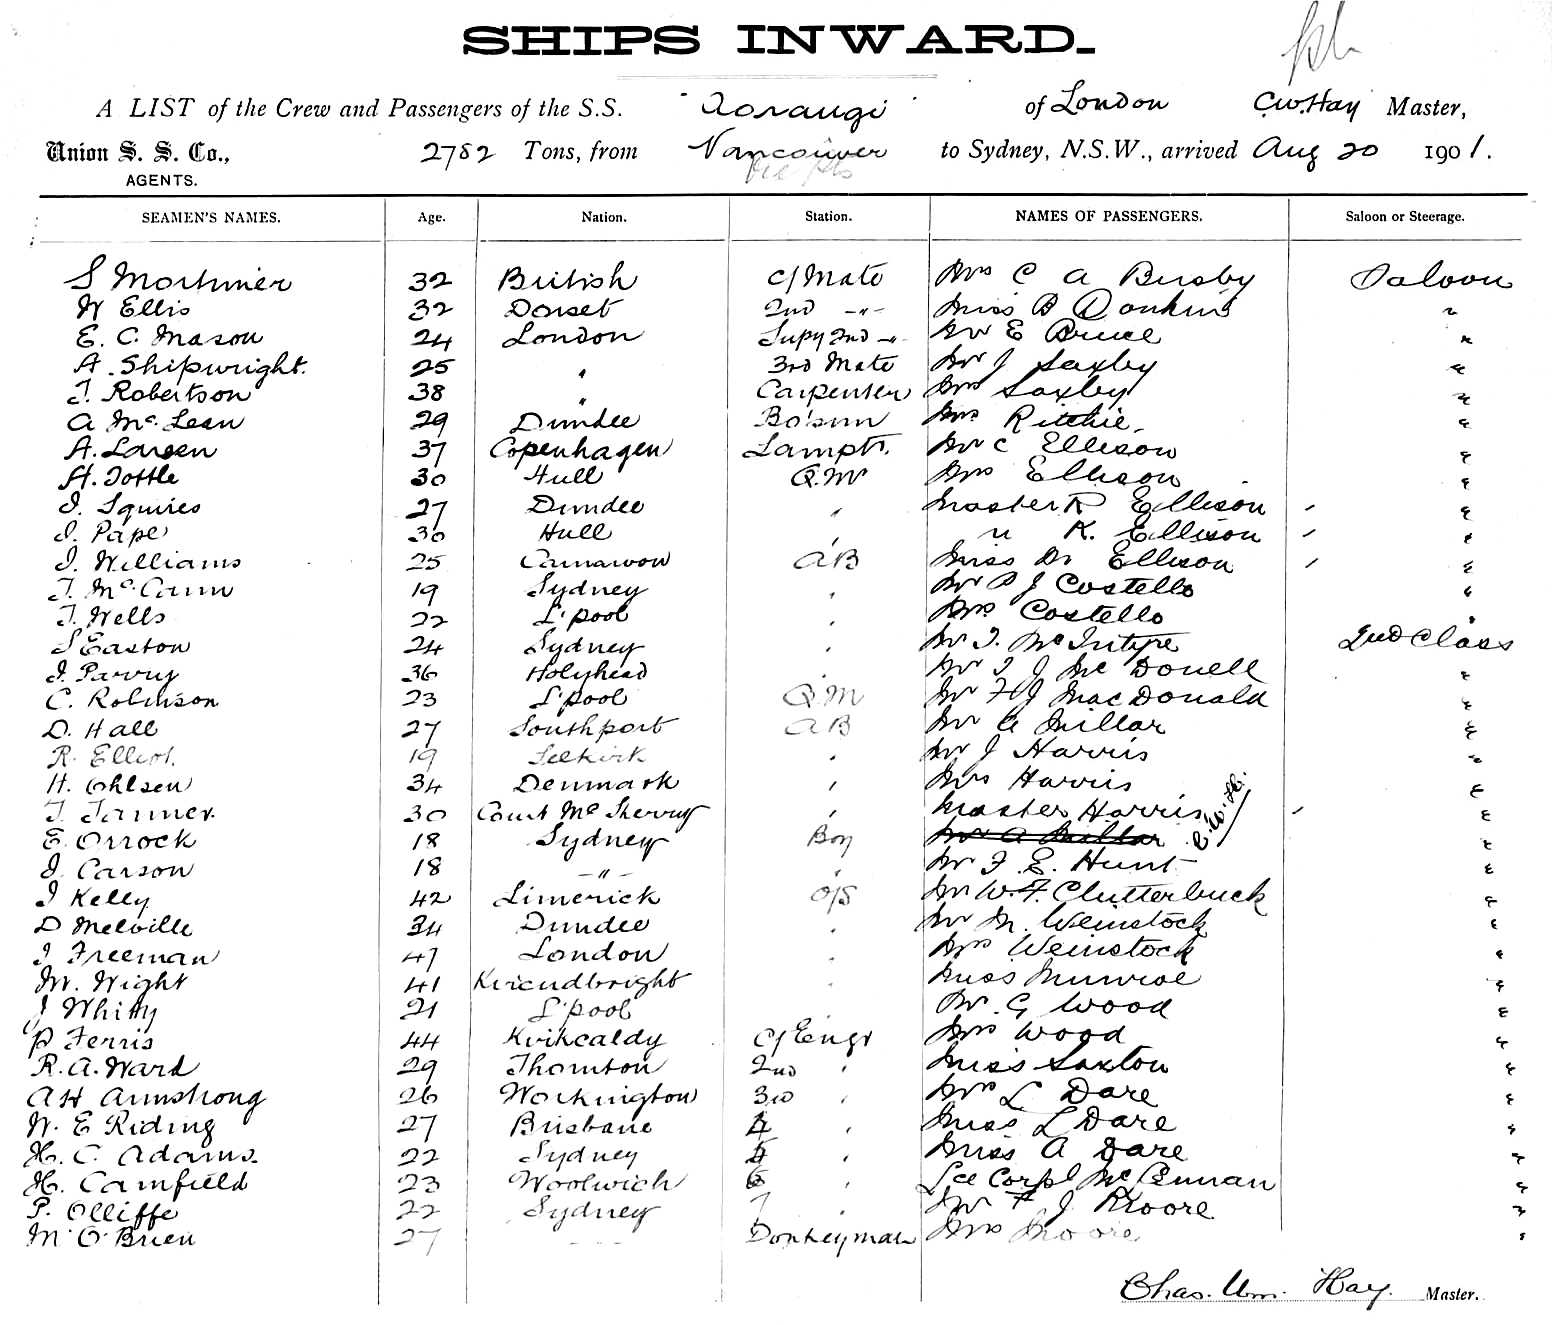 SHIPS INWARD.
A LIST of the Crew and Passengers of the S.S. "Aorangi" of London C.W. Hay Master,
Union S. S. Co., 2782 Tons, from Vancouver to Sydney, N.S.W., arrived Aug 20 1901.
AGENTS.
SEAMEN'S NAMES. Age. Nation. Station. NAMES OF PASSENGERS. Saloon or Steerage.
S Mortimer 32 British C/Mate Mrs C A Busby Saloon
W Ellis 32 Dorset 2nd -"- Miss B Donkin "
E. C. Mason 24 London Supy 2nd -"- Mr E Bruce "
A. Shipwright. 25 " 3rd Mate Mr J Saxby "
T. Robertson 38 " Carpenter Mrs Saxby "
A McLean 29 Dundee Bo'sun Mrs Ritchie "
A. Larsen 37 Copenhagen Lampts. Mr C Ellison "
H. Tottle 30 Hull Q.Mr Mrs Ellison "
J. Squires 27 Dundee " Master R Ellison "
J. Pape 30 Hull " " K. Ellison "
J. Williams 25 Carnarvon AB Miss M Ellison "
T. McCann 19 Sydney " Mr P J Costello "
T. Wells 22 L'pool " Mrs Costello "
S Easton 24 Sydney " Mr T. McIntyre 2nd Class
J. Parry 36 Holyhead Mr T J McDonell "
C. Robinson 23 L'pool Q.M Mr F J MacDonald "
D. Hall 27 Southport AB Mr A Millar "
R. Elliot. 19 Selkirk " Mr J Harris "
H. Ohlsen 34 Denmark " Mrs Harris "
T. Tanner. 30 Court McSherry " Master Harris "
E. Orrock 18 Sydney Boy Mr A Millar C.W.H. "
J. Carson 18 -"- " Mr F. E. Hunt "
J Kelly 42 Limerick O/S Mr W. F. Clutterbuck "
D Melville 34 Dundee " Mr M. Weinstock "
J Freeman 47 London " Mrs Weinstock "
M. Wight 41 Kircudbright " Miss Munroe "
J Whitty 21 L'pool " Mr. G Wood "
P Ferris 44 Kirkcaldy C/Engr Mrs Wood "
R. A. Ward 29 Thornton 2nd " Miss Saxton "
A H Armstrong 26 Workington 3rd " Mrs L Dare "
W. E Riding 27 Brisbane 4 " Miss L Dare "
H. C. Adams. 22 Sydney 5 " Miss A Dare "
H. Camfield 23 Woolwich 6 " Lce Corpl McLennan "
P. Olliffe 22 Sydney 7 " Mr F J Moore "
M O'Brien 27 - - - Donkeyman Mrs Moore "
Chas. Wm. Hay. Master.